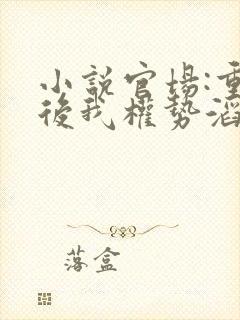 小說官場:重
後我權勢滔
落盒